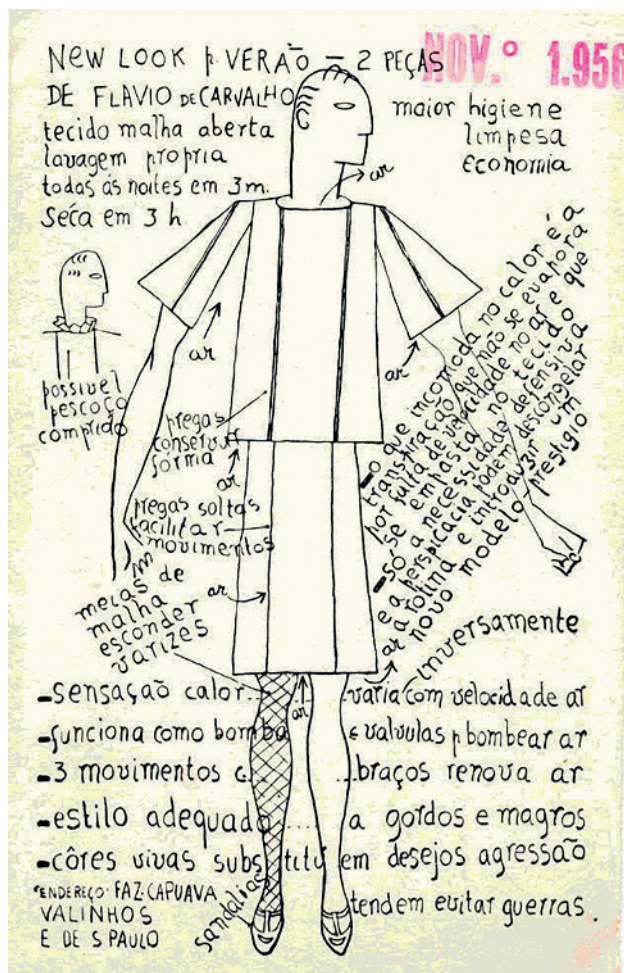 NEW LOOK p. VERÃO – 2 PEÇAS
DE FLAVIO DE CARVALHO
NOV.º 1.956
tecido malha aberta
lavagem propria
todas ás noites em 3 m.
Séca em 3 h
maior higiene
limpesa
economia
ar
ar
ar
possivel
pescoço
comprido
pregas
conservar
forma
ar
pregas soltas
facilitar
movimentos
ar
meias de
malha
esconder
varizes
–o que incomoda no calor é a
transpiração que não se evapora
por falta de velocidade no ar e que
se empasta no tecido
–só a necessidade defensiva
e a perspicacia podem descongelar
a rotina e introduzir um
novo modelo-prestigio
ar
inversamente
ar
–sensação calor... ...varia com velocidade ar
–funciona como bomba e valvulas p bombear ar
–3 movimentos c... ...braços renova ar
–estilo adequado..... a gordos e magros
–côres vivas substituem desejos agressão
tendem evitar guerras.
ENDEREÇO: FAZ. CAPUAVA
VALINHOS
E DE S PAULO
sandalias